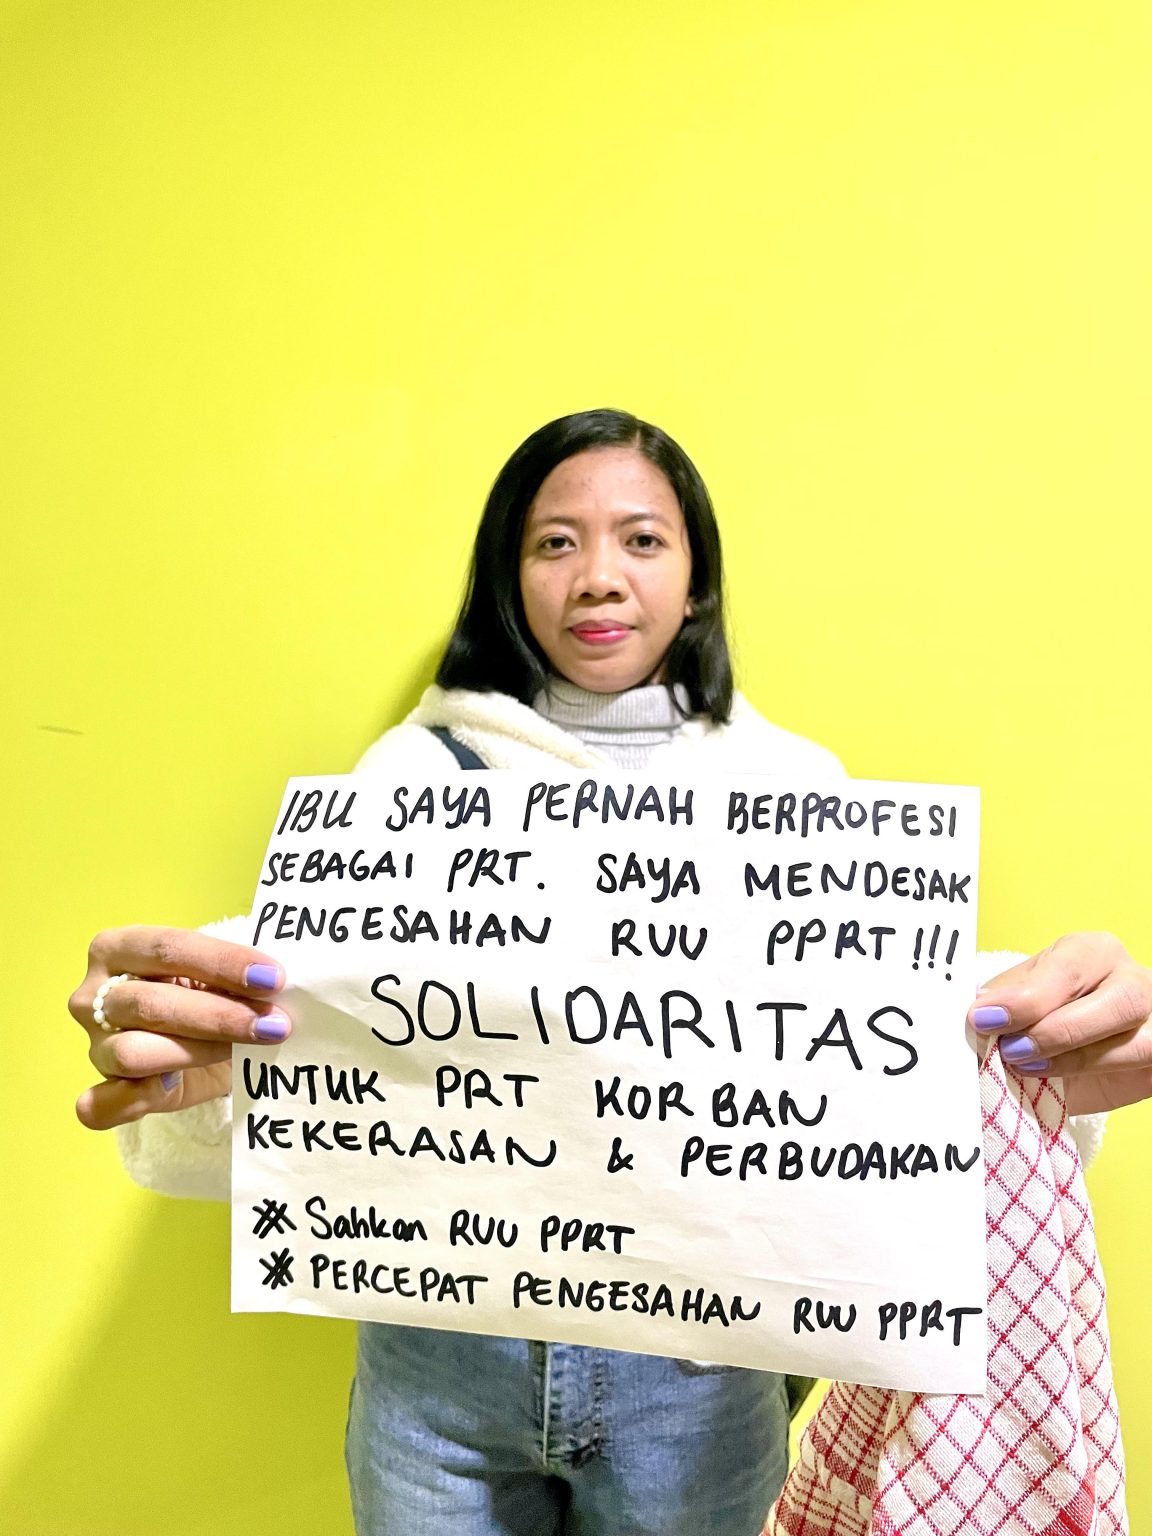 IBU SAYA PERNAH BERPROFESI
SEBAGAI PRT. SAYA MENDESAK
PENGESAHAN RUU PPRT!!!
SOLIDARITAS
UNTUK PRT KORBAN
KEKERASAN & PERBUDAKAN
# Sahkan RUU PPRT
# PERCEPAT PENGESAHAN RUU PPRT